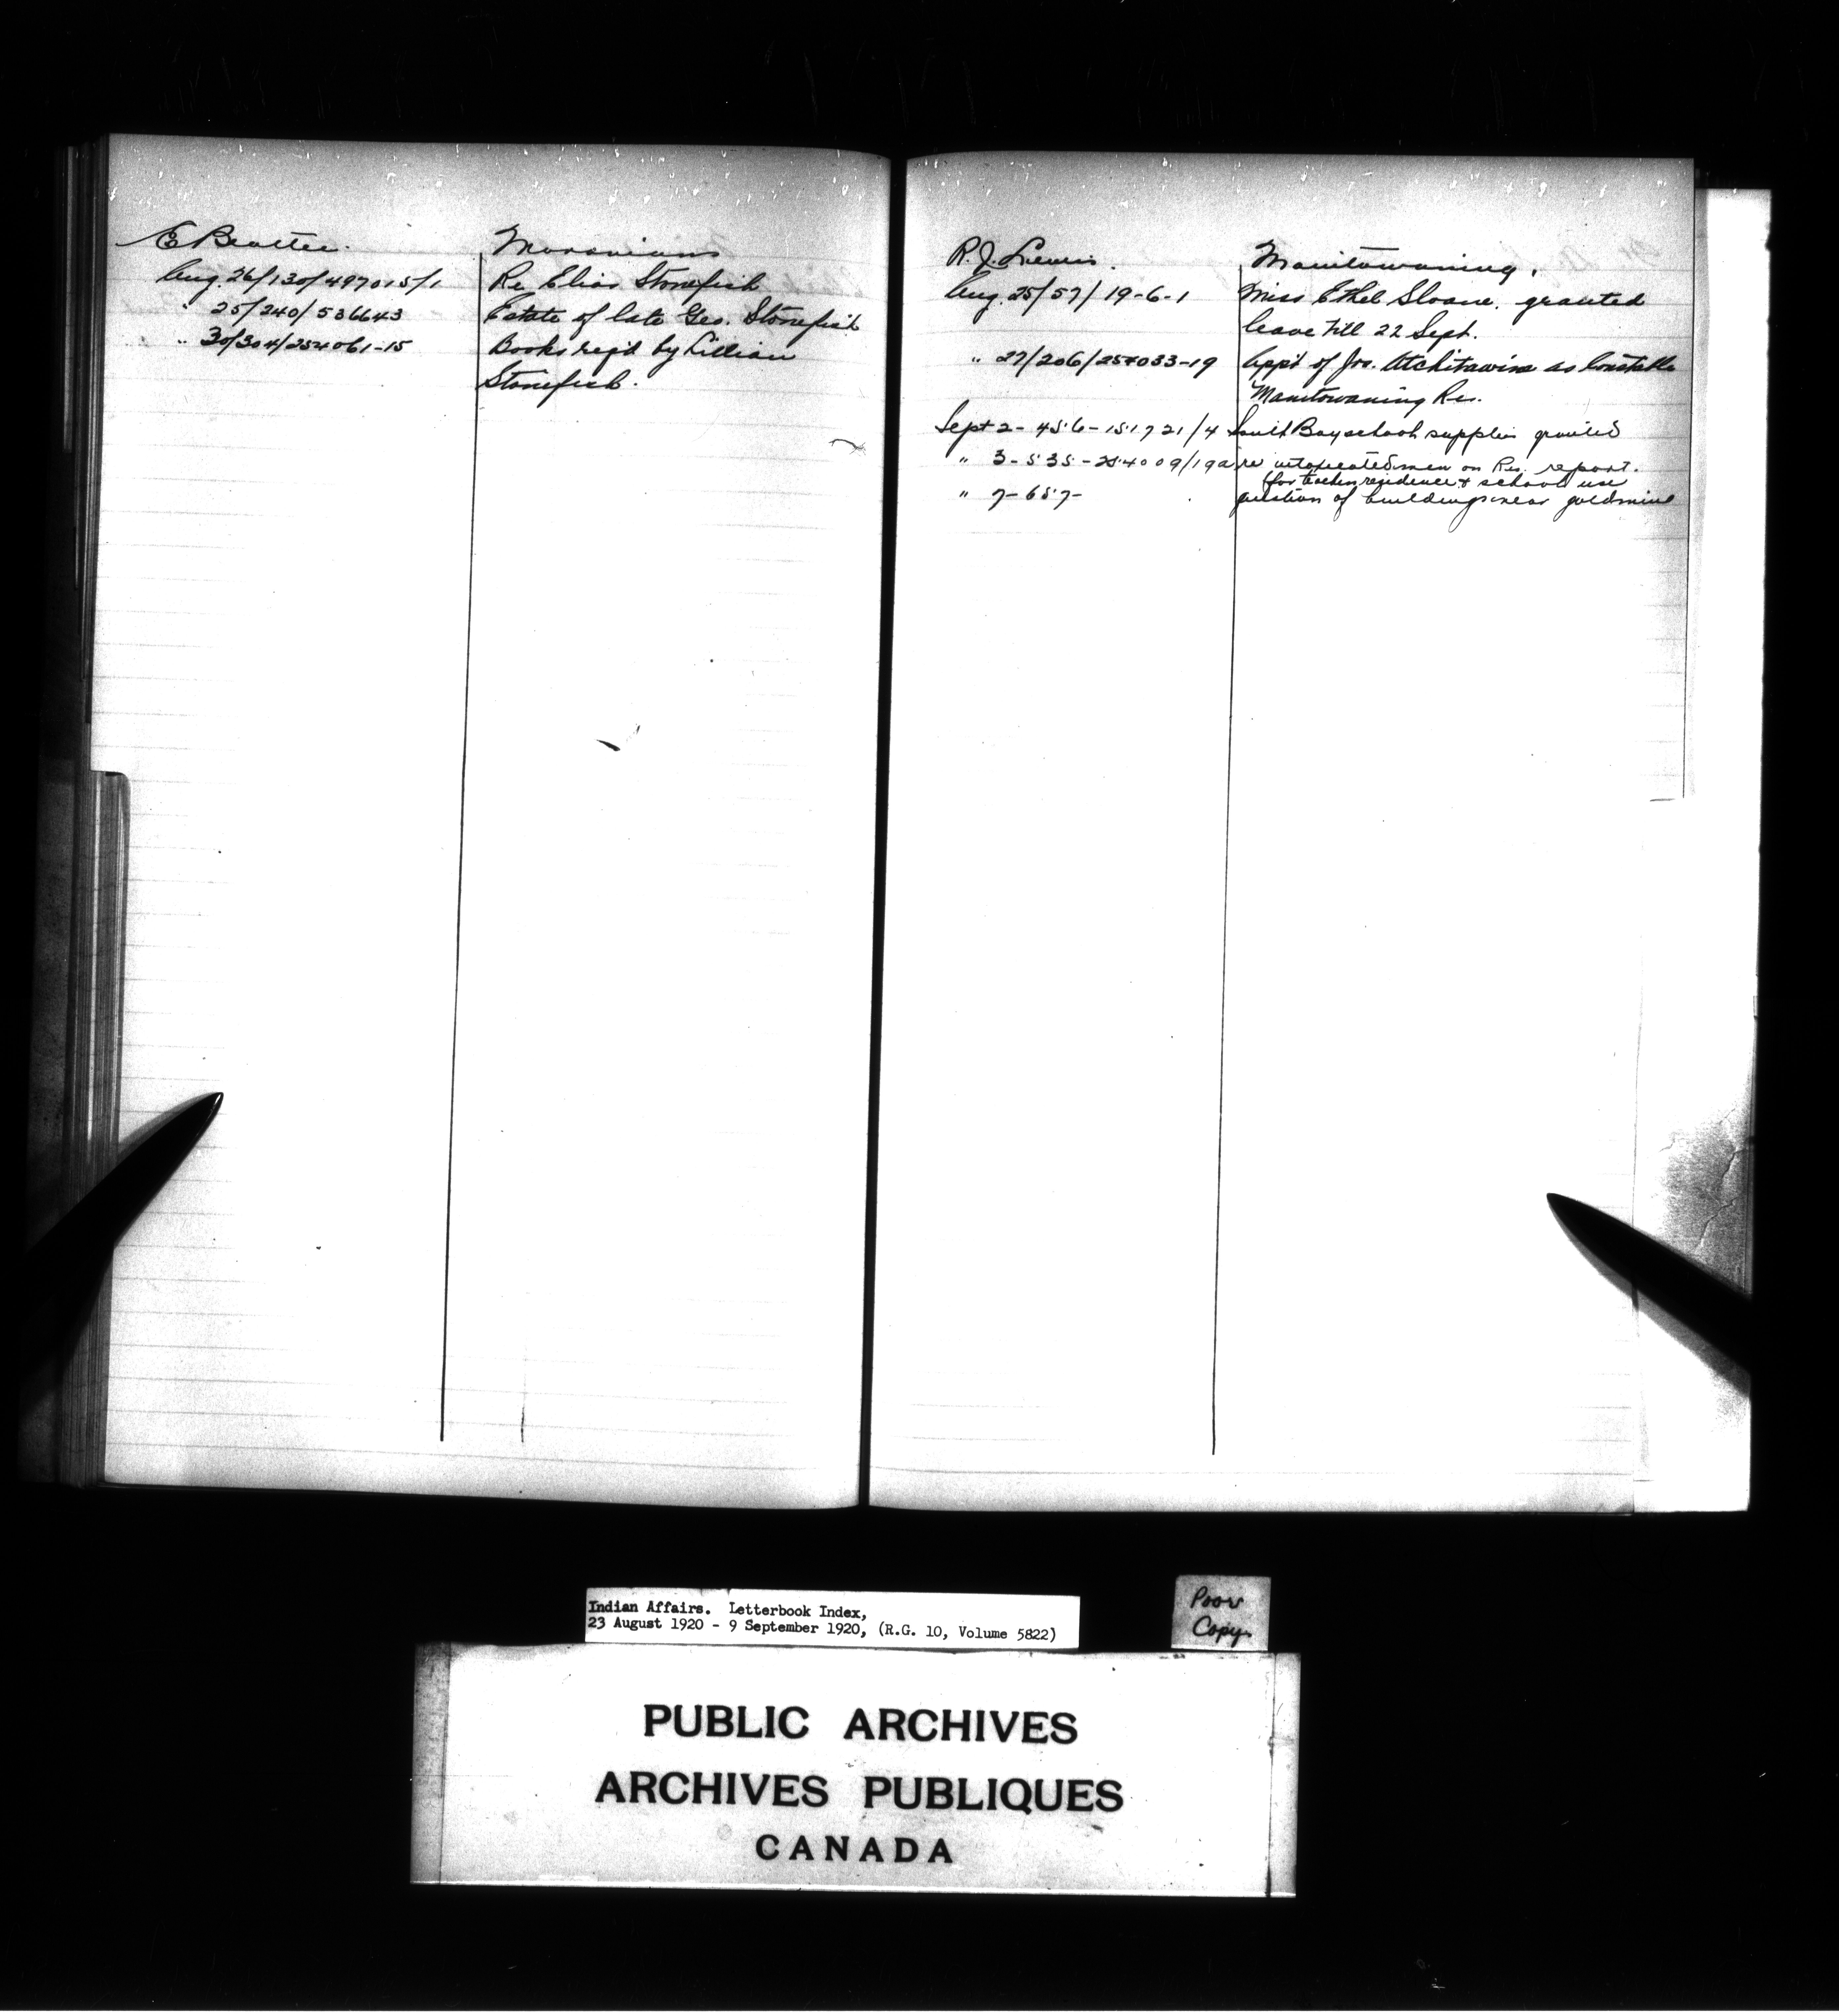 E Beattie.
Moravians
Aug. 26/130/497015/1
Re Elias Stonefish
" 25/240/536643
Estate of late Geo. Stonefish
" 30/304/254061-15
Books req'd by Lillian
Stonefish.
R. J. Lewis.
Manitowaning.
Aug. 25/57/19-6-1
Miss Ethel Sloane. granted
leave till 22 Sept.
" 27/206/254033-19
App't of Jos. as Constable
Manitowaning Res.
Sept 2- 456-151721/4
South Bay school supplies granted
" 3-535-254009/19a
re intoxicated men on Res. report.
(for teachers residence & school use
" 7-657-
question of buildings near goldmine
Indian Affairs. Letterbook Index,
23 August 1920 - 9 September 1920, (R.G. 10, Volume 5822)
Poor
Copy.
PUBLIC ARCHIVES
ARCHIVES PUBLIQUES
CANADA